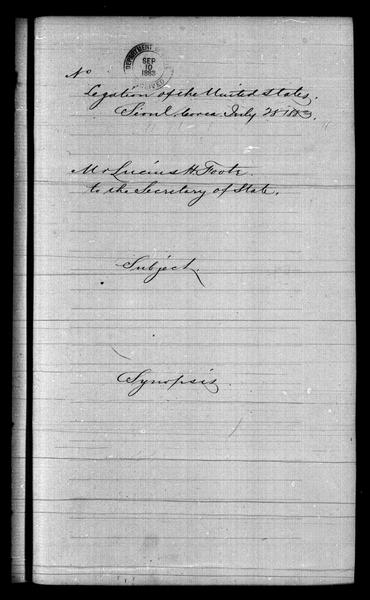 DEPARTMENT OF
SEP
10
1883
RECEIVED
No
Legation of the United States.
Sioul, Corea July 28 1883.
Mr Lucius H. Foote
to the Secretary of State.
Subject.
Synopsis.